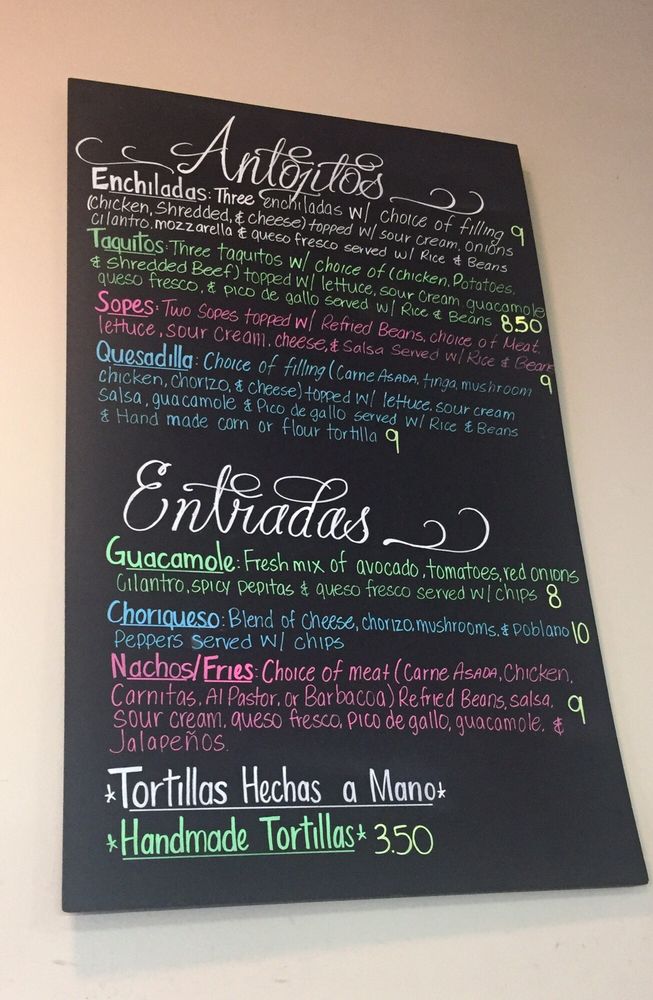 Antojitos
Enchiladas: Three enchiladas w/ choice of filling 9
(chicken, Shredded, & cheese) topped w/ sour cream, onions
cilantro, mozzarella & queso fresco served w/ Rice & Beans
Taquitos: Three taquitos w/ choice of (chicken, Potatoes,
& Shredded Beef) topped w/ lettuce, sour cream, guacamole
queso fresco, & pico de gallo served w/ Rice & Beans 8.50
Sopes: Two Sopes topped w/ Refried Beans, choice of Meat,
lettuce, sour cream, cheese, & Salsa Served w/ Rice & Beans
9
Quesadilla: Choice of filling (Carne Asada, tinga, mushroom
chicken, chorizo, & cheese) topped w/ lettuce, sour cream
salsa, guacamole & Pico de gallo served w/ Rice & Beans
& Hand made corn or flour tortilla 9
Entradas
Guacamole: Fresh mix of avocado, tomatoes, red onions
cilantro, spicy pepitas & queso fresco served w/ chips 8
Choriqueso: Blend of cheese, chorizo, mushrooms, & poblano 10
Peppers served w/ chips
Nachos/Fries: Choice of meat (Carne Asada, Chicken,
Carnitas, Al Pastor, or Barbacoa) Refried Beans, salsa, 9
sour cream, queso fresco, pico de gallo, guacamole, &
Jalapeños.
*Tortillas Hechas a Mano*
*Handmade Tortillas* 3.50